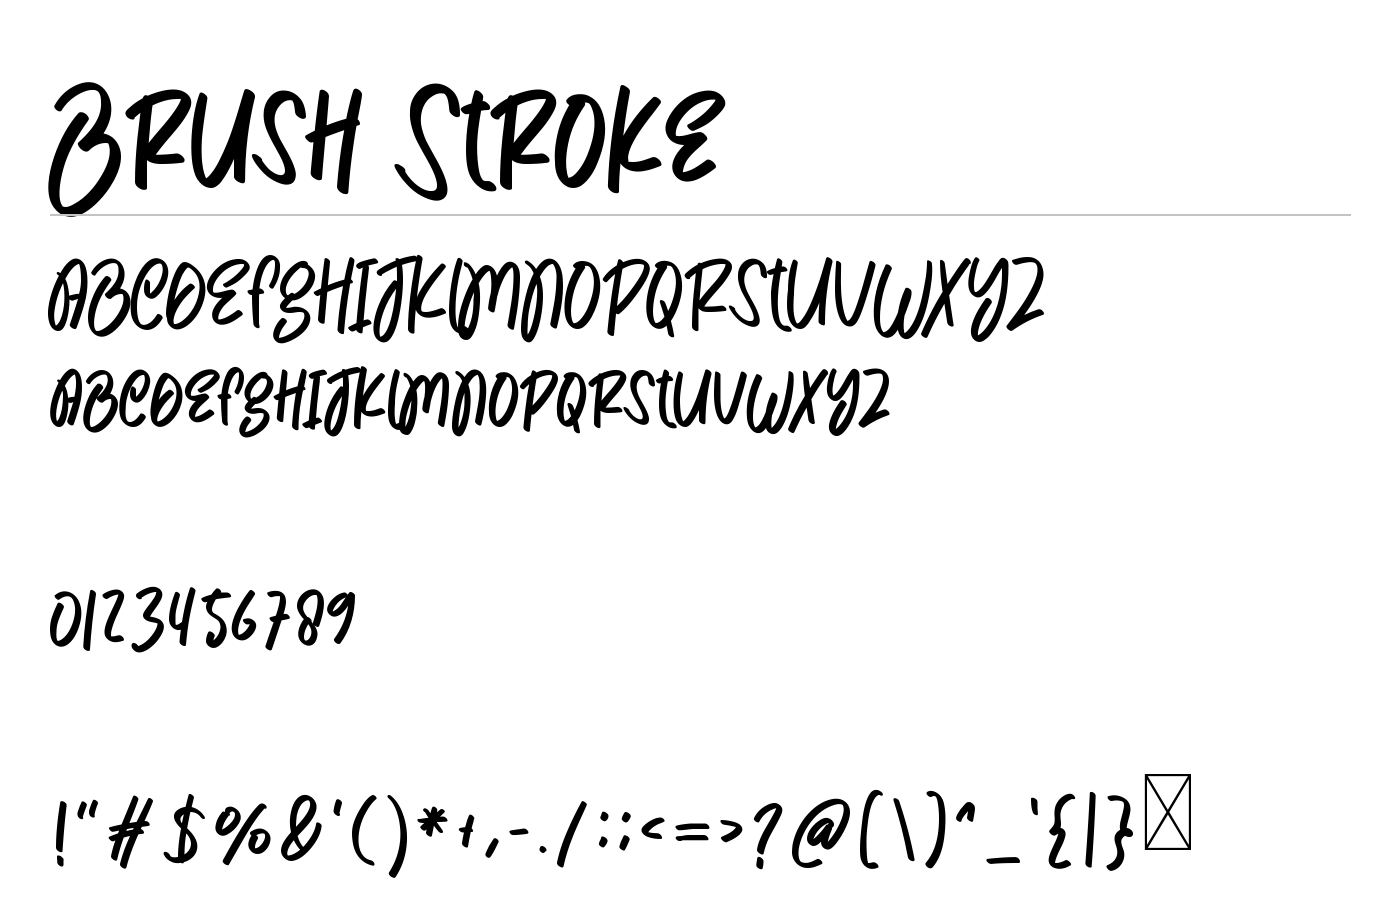 BRUSH STROKE
ABCDEFGHIJKLMNOPQRSTUVWXYZ
ABCDEFGHIJKLMNOPQRSTUVWXYZ
0123456789
!"#$%&'()*+,-./:;<=>?@[\]^_`{|}